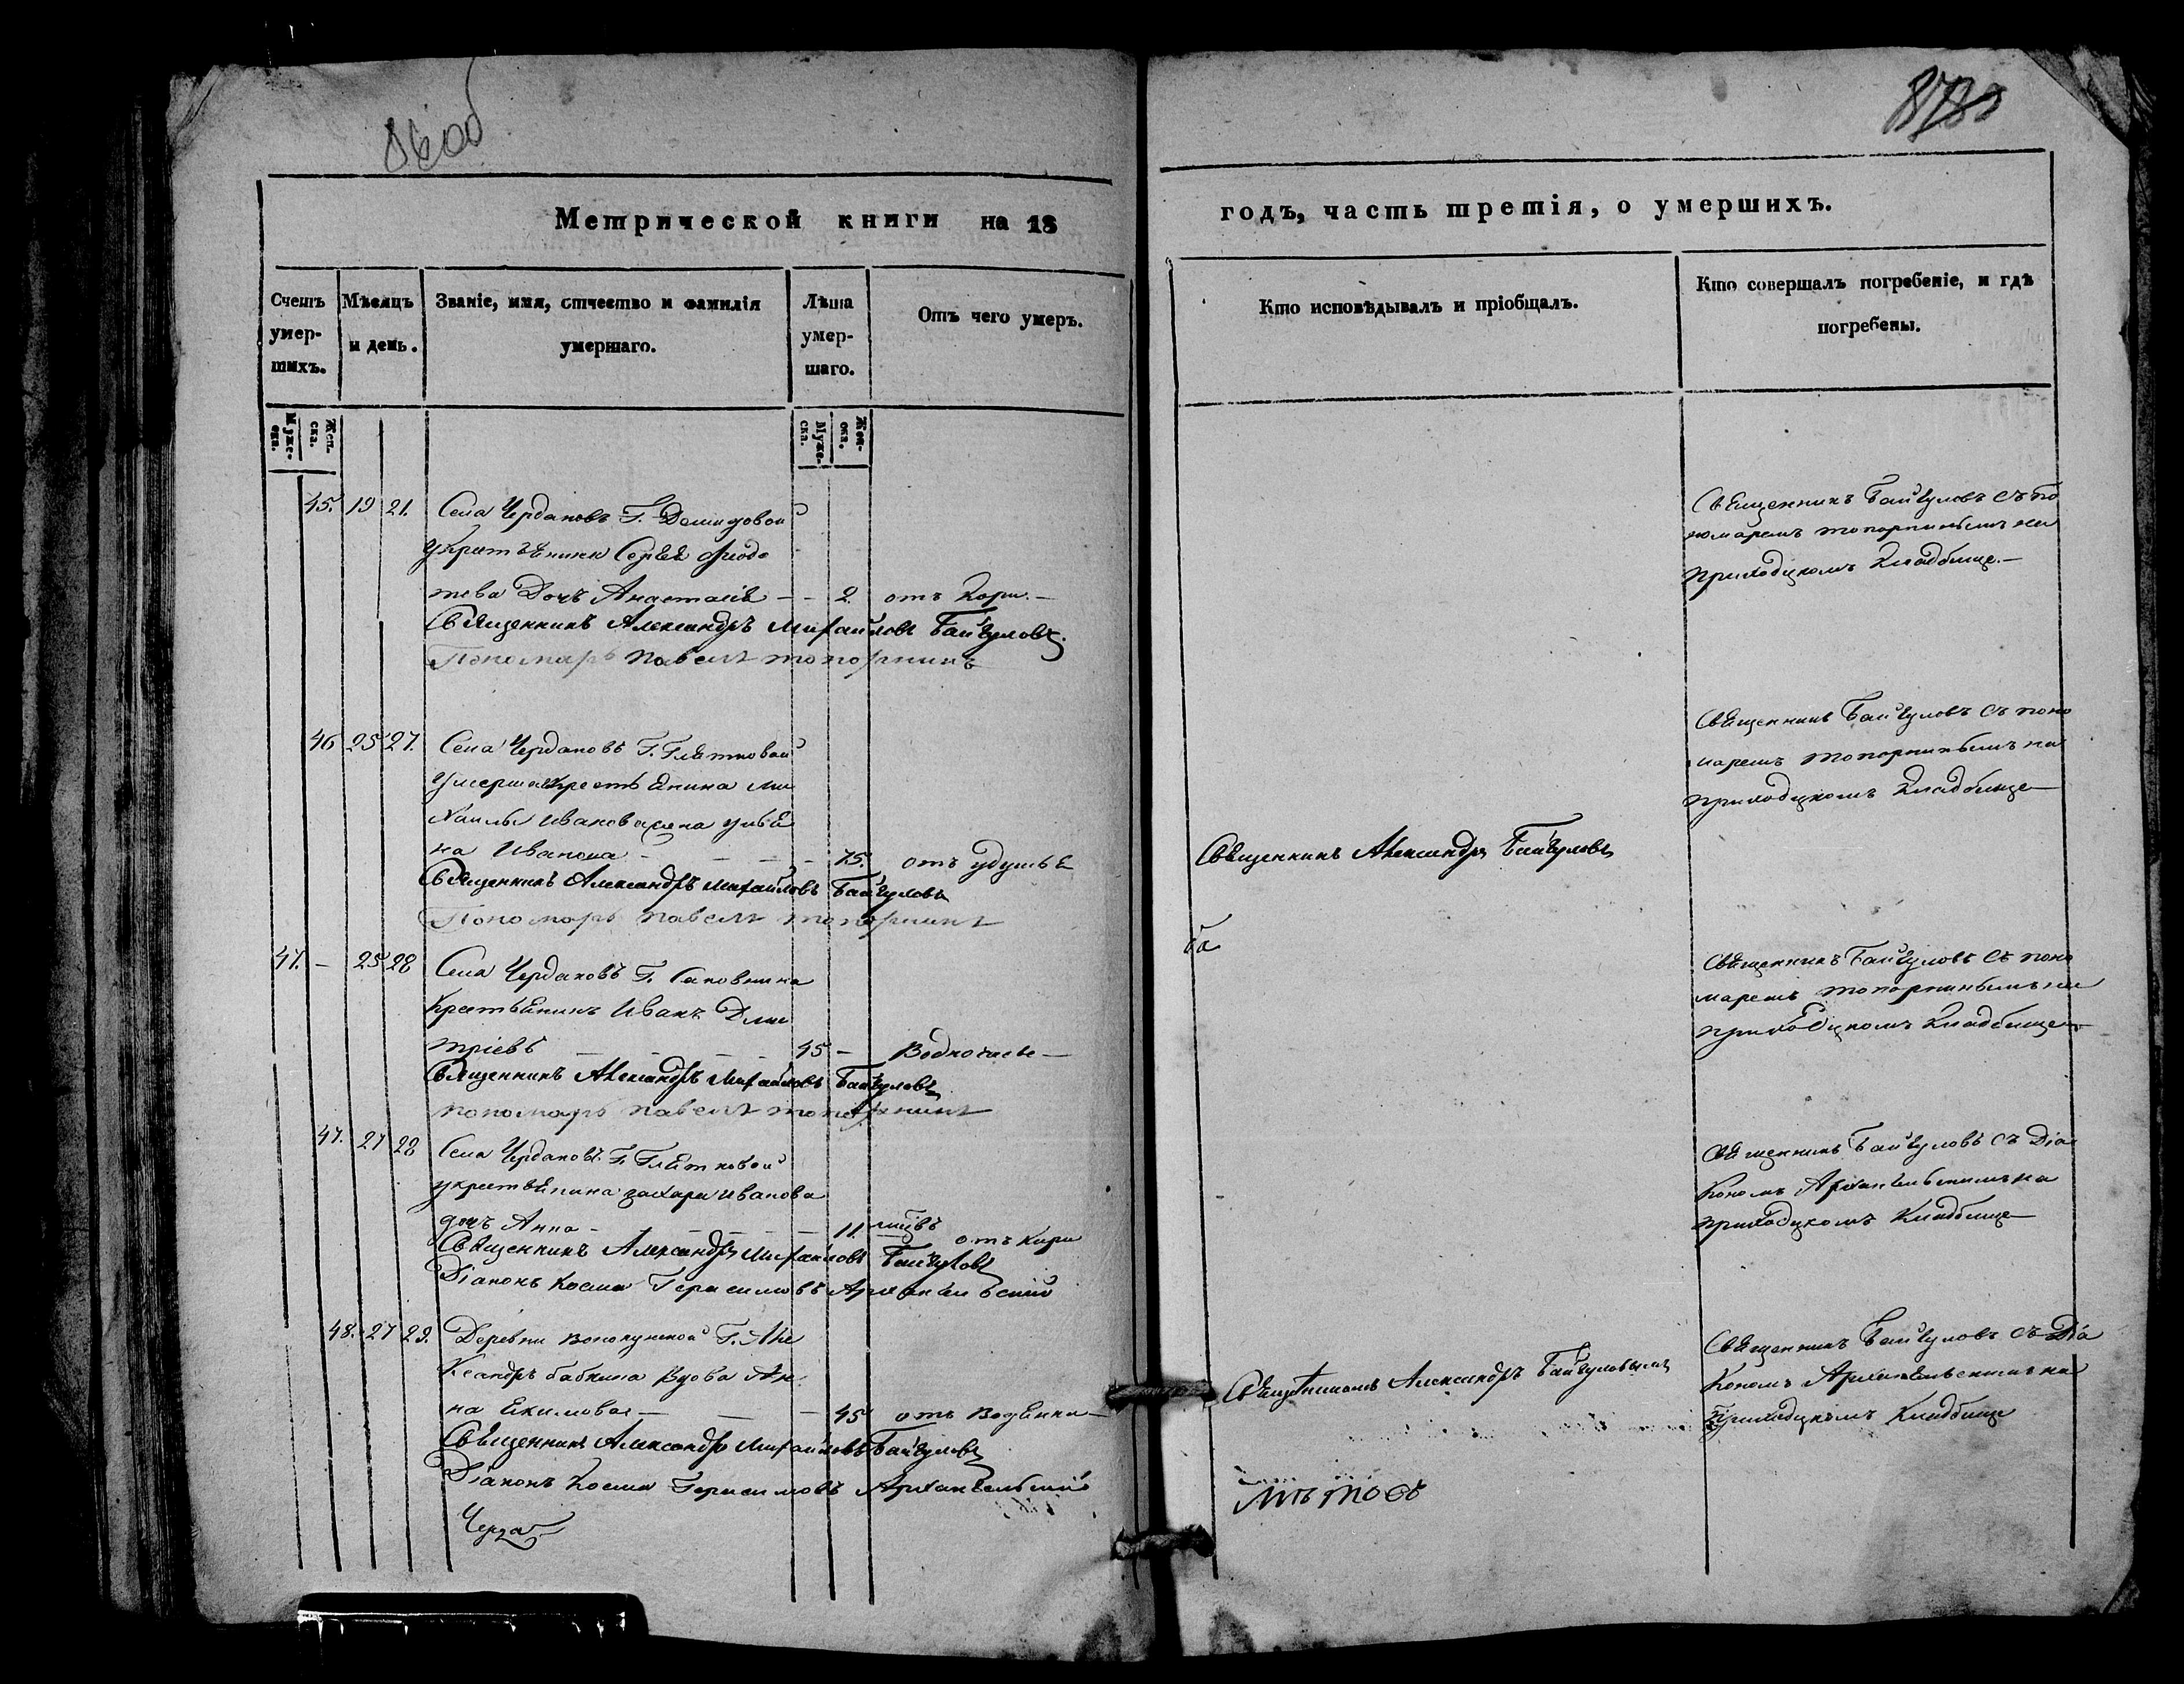 86 об
Метрической книги на 18
годъ, часть третія, о умершихъ.
Счетъ умер-шихъ.
Мѣсяцъ и день.
Званіе, имя, отчество и фамилія умершаго.
Лѣта умер-шаго.
Отъ чего умеръ.
Кто исповѣдывалъ и пріобщалъ.
Кто совершалъ погребеніе, и гдѣ погребены.
Муже-ска.
Жен-ска.
Муже-ска.
Жен-ска.
45. 19 21. Села Чердаковъ Г. Демидовой
Сергея Федо
това Дочь Анастасія — 2. отъ Кори. —
Священникъ Александръ Михайловъ Байгуловъ
Пономарь Павелъ Топорнинъ
Священникъ Байгуловъ съ по
номаремъ Топорнинымъ на
приходскомъ Кладбище. —
46 25 27. Села Чердаковъ Г.
умерша крестьянина Ми
хаилы Иванова жена улья
на Иванова — — — 75. отъ удушья
Священникъ Александръ Михайловъ Байгуловъ
Пономарь Павелъ Топорнинъ
Священникъ Александръ Байгуловъ
Священникъ Байгуловъ съ поно
маремъ Топорнинымъ на
приходскомъ Кладбище —
47. — 25 28 Села Чердаковъ Г.
Крестьянинъ Иванъ Дми
тріевъ — — — 45 —
Священникъ Александръ Михайловъ Байгуловъ
пономарь Павелъ Топорнинъ
Священникъ Байгуловъ съ поно
маремъ Топорнинымъ на
приходскомъ Кладбище
47. 27 28 Села Чердаковъ Г.
у крестьянина захара иванова
дочь Анна — — — 11. отъ Кори
Священникъ Александръ Михайловъ Байгуловъ
Діаконъ Косма Герасимовъ Архангельскій
Священникъ Байгуловъ съ Діа
кономъ Архангельскимъ на
приходскомъ Кладбище —
48. 27 29. Деревни Г. Але
ксандръ бабкина Вдова Ан
на Екимова — — 45 отъ Водянки —
Священникъ Александръ Михайловъ Байгуловъ
Діаконъ Косма Герасимовъ Архангельскій
Священникомъ Александръ Байгуловымъ
Священникъ Байгуловъ съ Діа
кономъ Архангельскимъ на
Приходскомъ Кладбище